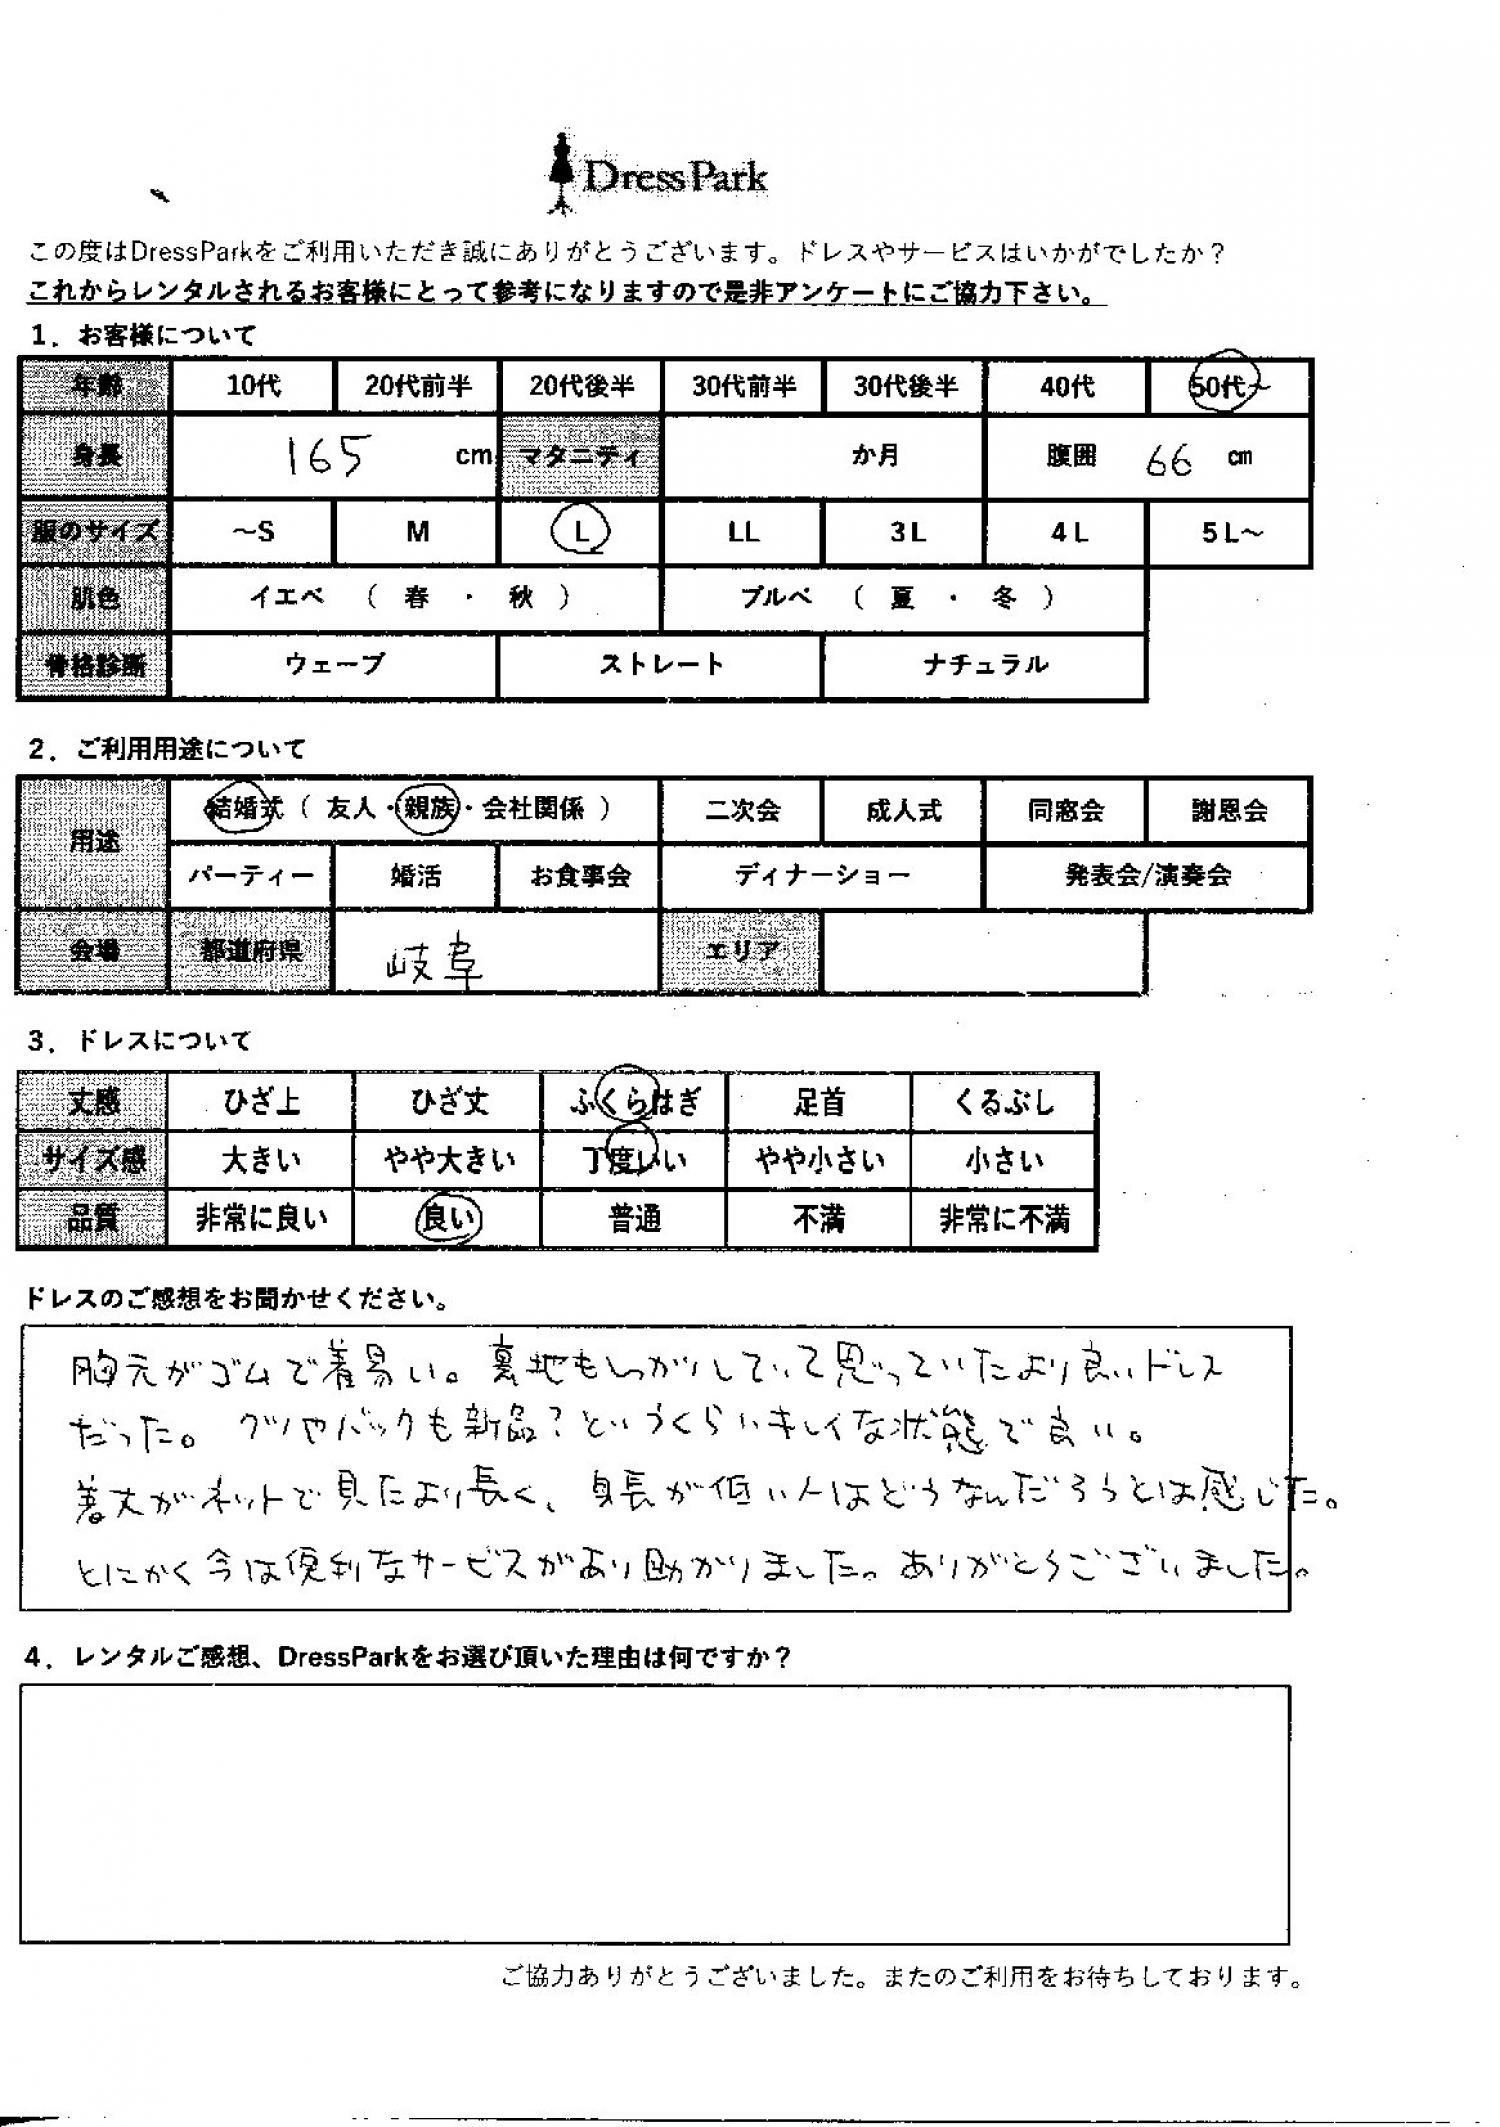 DressPark
この度はDressParkをご利用いただき誠にありがとうございます。ドレスやサービスはいかがでしたか？
これからレンタルされるお客様にとって参考になりますので是非アンケートにご協力下さい。
1．お客様について
年齢 10代 20代前半 20代後半 30代前半 30代後半 40代 50代～
身長 165 cm マタニティ か月 腹囲 66 cm
服のサイズ ～S M L LL 3L 4L 5L～
肌色 イエベ （ 春 ・ 秋 ） ブルベ （ 夏 ・ 冬 ）
骨格診断 ウェーブ ストレート ナチュラル
2．ご利用用途について
用途 結婚式（ 友人・親族・会社関係 ） 二次会 成人式 同窓会 謝恩会
パーティー 婚活 お食事会 ディナーショー 発表会/演奏会
会場 都道府県 岐阜 エリア
3．ドレスについて
丈感 ひざ上 ひざ丈 ふくらはぎ 足首 くるぶし
サイズ感 大きい やや大きい 丁度いい やや小さい 小さい
品質 非常に良い 良い 普通 不満 非常に不満
ドレスのご感想をお聞かせください。
胸元がゴムで着易い。裏地もしっかりしていて思っていたより良いドレス
だった。クツやバックも新品？というくらいキレイな状態で良い。
着丈がネットで見たより長く、身長が低い人はどうなんだろうとは感じた。
とにかく今は便利なサービスがあり助かりました。ありがとうございました。
4．レンタルご感想、DressParkをお選び頂いた理由は何ですか？
ご協力ありがとうございました。またのご利用をお待ちしております。